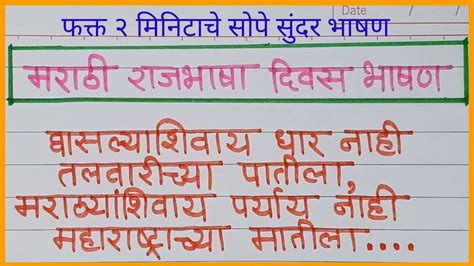 फक्त २ मिनिटाचे सोपे सुंदर भाषण
Date
मराठी राजभाषा दिवस भाषण
घासल्याशिवाय धार नाही
तलवारीच्या पातीला,
मराठ्यांशिवाय पर्याय नाही
महाराष्ट्राच्या मातीला....